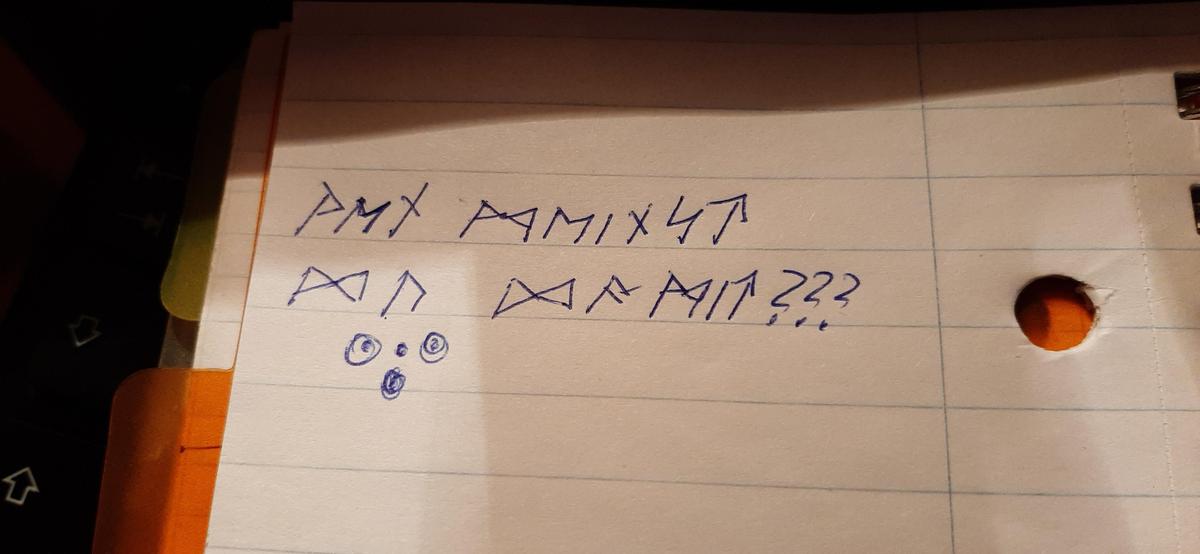 ᚹᛖᚾ ᛗᛖᛁᚾᛋᛏ
ᛞᚢ ᛞᚨᛗᛁᛏ???